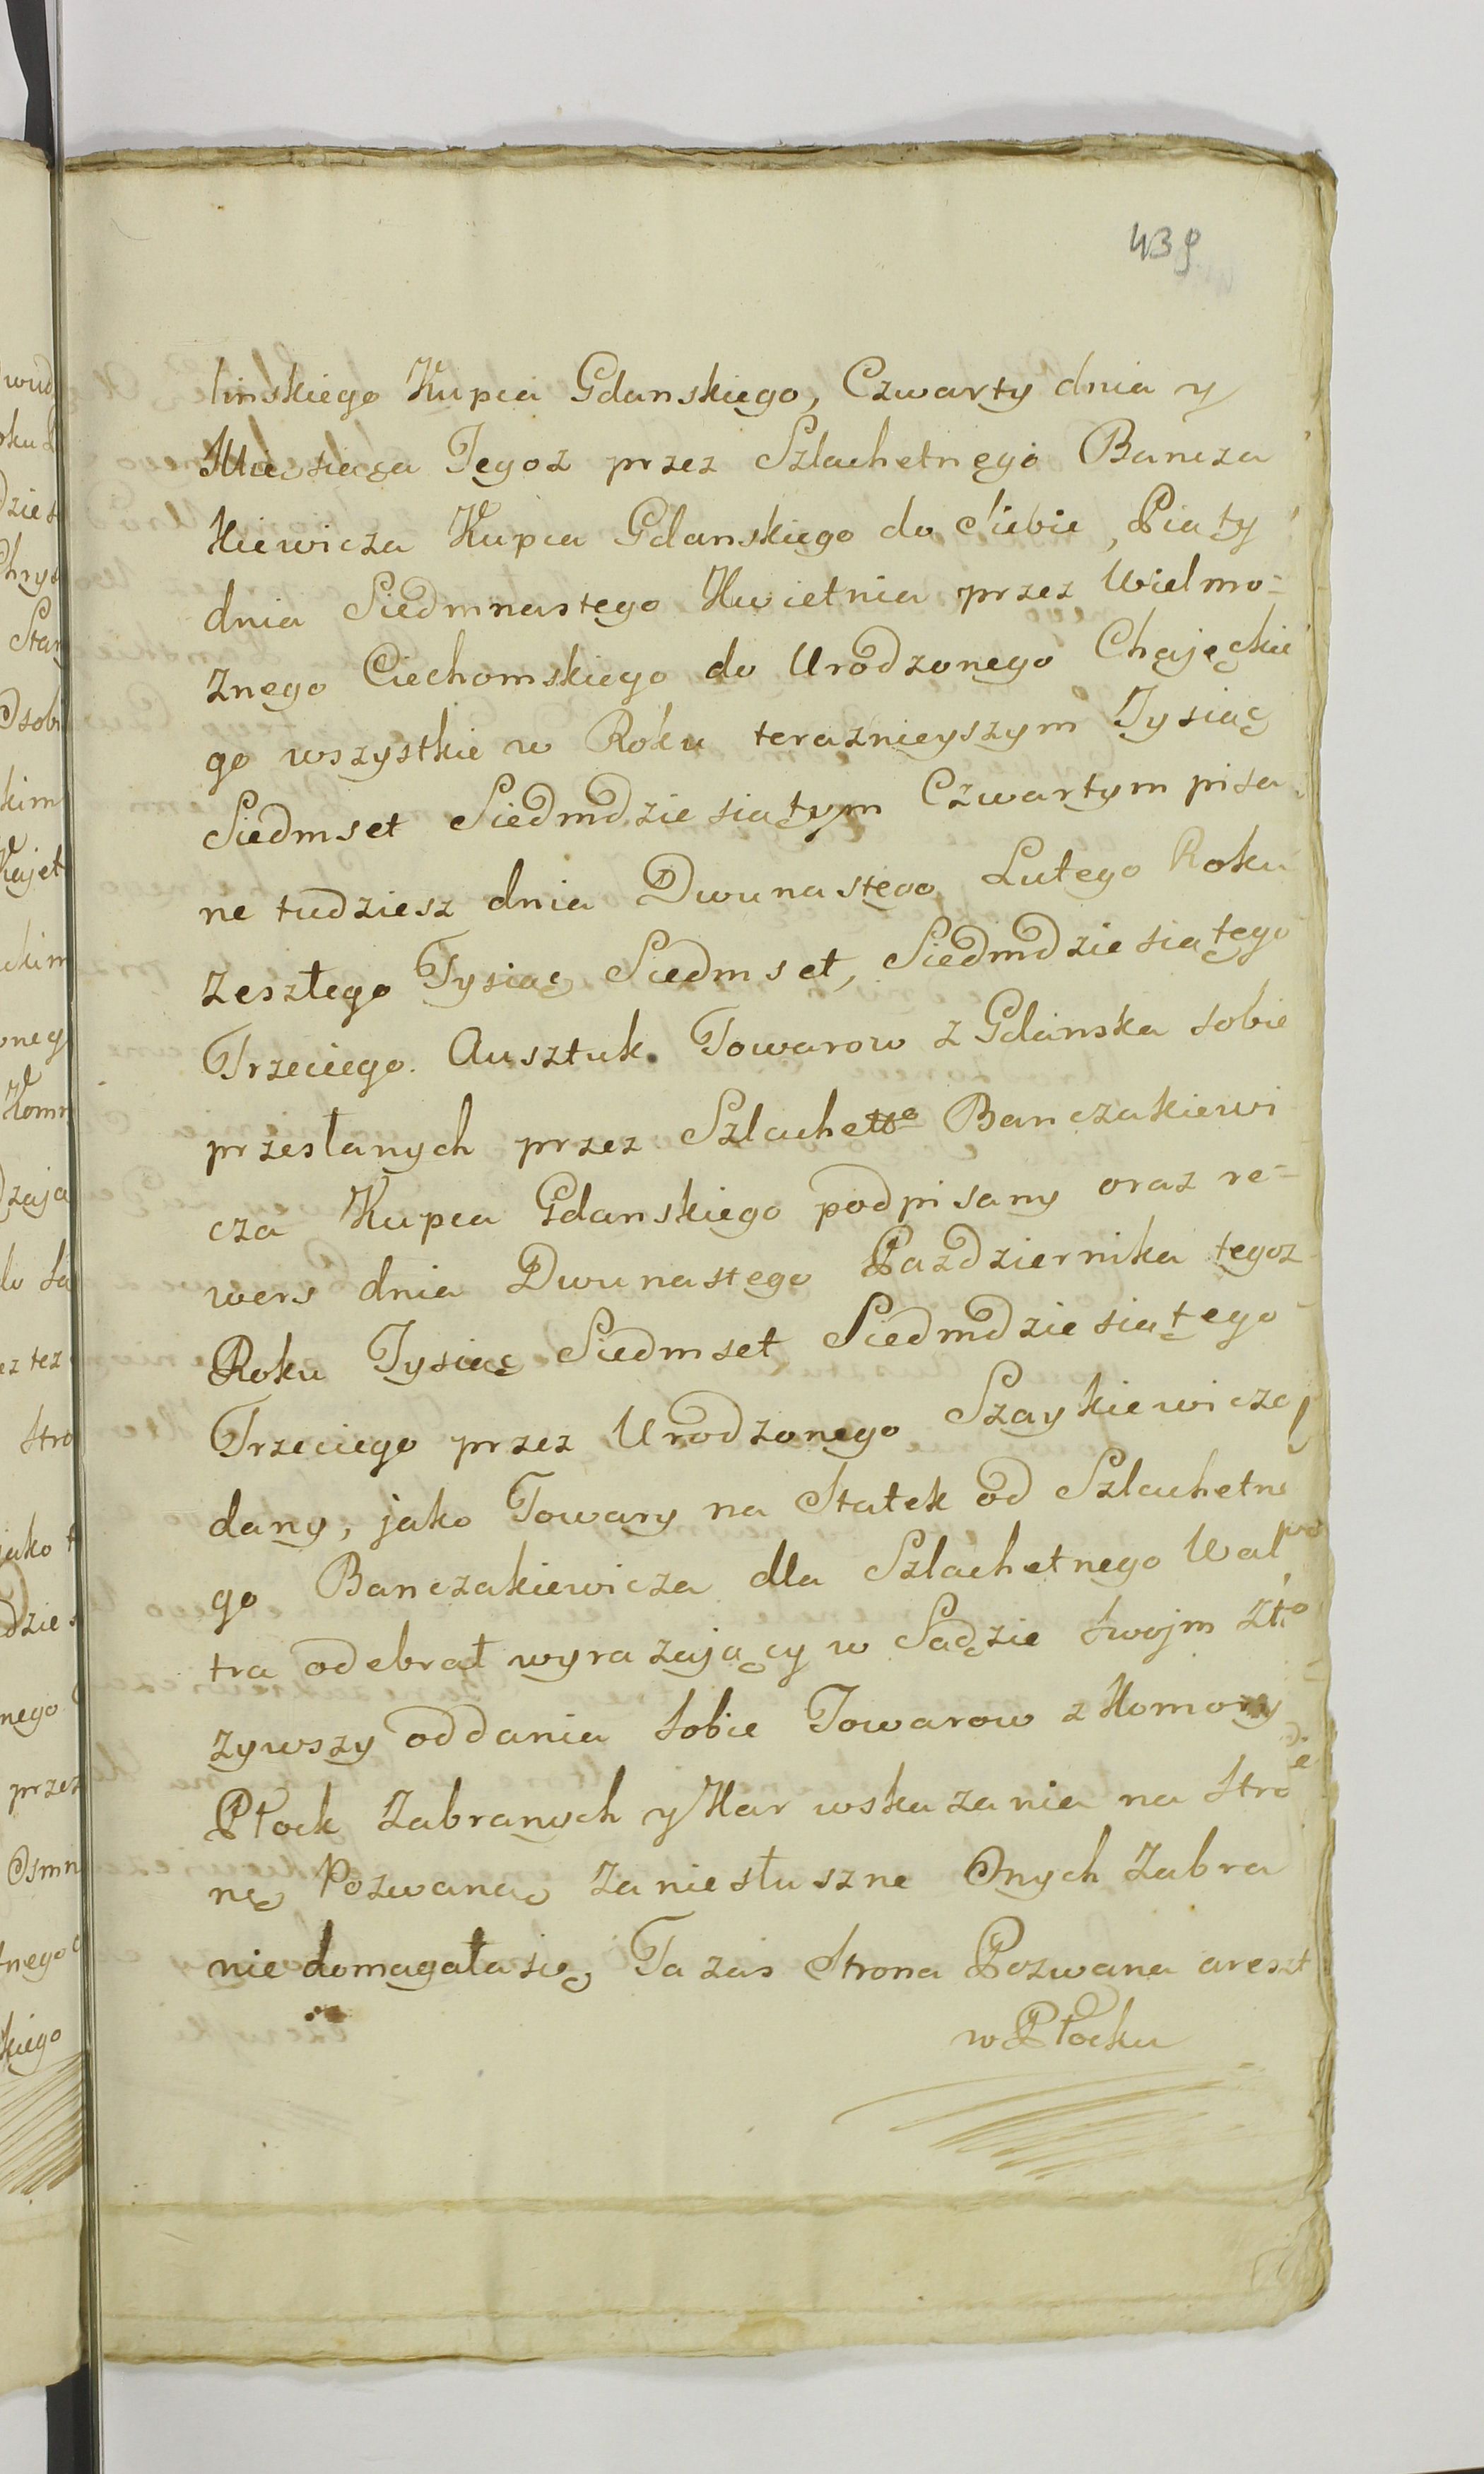 439
linskiego Kupca Gdanskiego, Czwarty dnia y
Miesiąca Tegoz przez Szlachetnego Bancza
kiewicza Kupca Gdanskiego do Siebie, Piąty
dnia Siedmnastego Kwietnia przez Wielmo-
znego Ciechomskiego do Urodzonego Chajęckie
go wszystkie w Roku teraznieyszym Tysiąc
Siedmset Siedmdziesiątym Czwartym pisa-
ne tudziesz dnia Dwunastego Lutego Roku
Zeszłego Tysiąc Siedmset, Siedmdziesiątego
Trzeciego. Ausztuk. Towarow z Gdanska sobie
przesłanych przez Szlachetgo Banczakiewi
cza Kupca Gdanskiego podpisany oraz re-
wers dnia Dwunastego Pazdziernika tegoz
Roku Tysiąc Siedmset Siedmdziesiątego
Trzeciego przez Urodzonego Szaykiewicza
dany, jako Towary na Statek od Szlachetne
go Banczakiewicza dla Szlachetnego Wal
tra odebrał wyrazający w Sądzie swojm Zło
zywszy oddania sobie Towarow z Komory
Płock Zabranych y Kar wskazania na Stro
nę Pozwaną za niesłuszne Onych Zabra
nie domagała się, Ta zas Strona Pozwana areszt
w Płocku